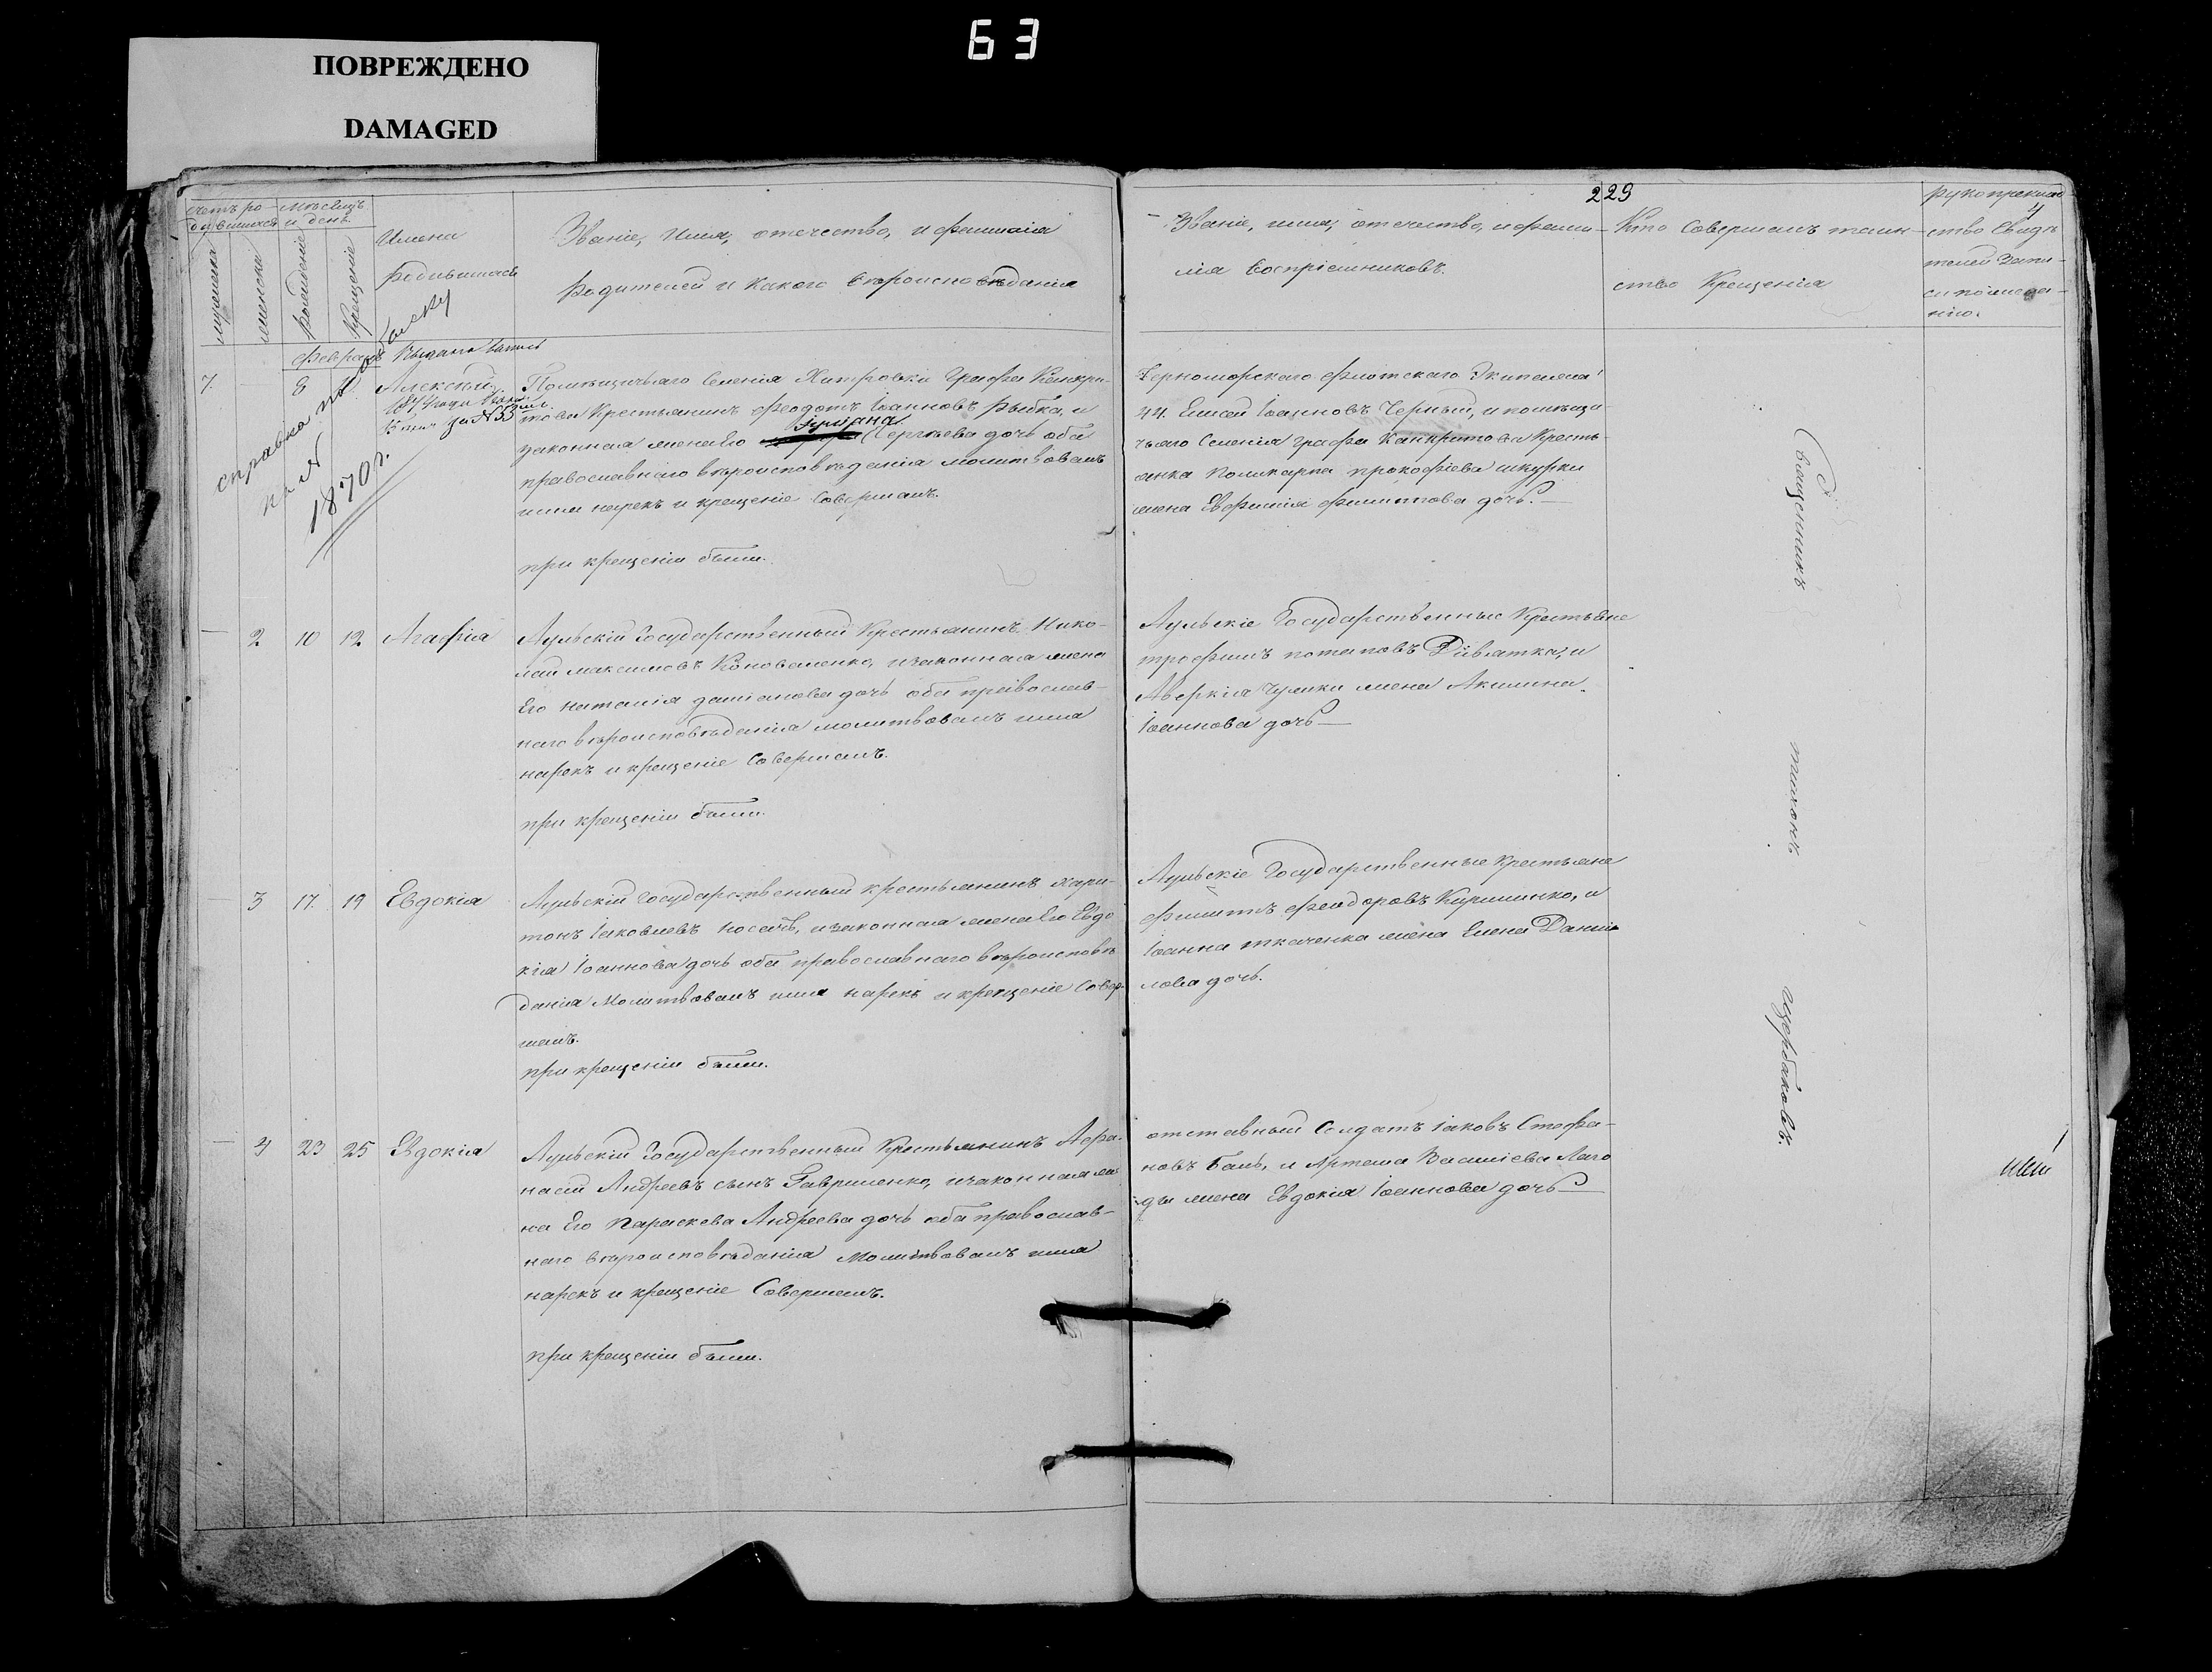 63
ПОВРЕЖДЕНО
DAMAGED
229
счетъ ро-
дившихся
мѣсяцъ
и день
мужеска
женска
рожденія
Крещенія
Имена
родившихся
Званіе, Имя, отечество, и фамилія
родителей и какого вѣроисповѣданія
Званіе, имя, отечество, и фами-
лія воспріемниковъ.
Кто совершалъ таин-
ство Крещенія
рукоприклад
ство свидѣ
телей запи-
си по жела-
нію.
справка по
1870 г.
за № 53
7. 8 Алексѣй
Помѣщичьяго Селенія Хитровки Графа Канкри-
това Крестьянинъ Феодотъ Іоанновъ Рыбка, и
законная жена Его Сергѣева дочь оба
православнаго вѣроисповѣданія молитвовалъ
имя нарекъ и крещеніе Совершалъ.
при крещеніи были.
Черноморскаго флотскаго Экипажа
44. Елисей Іоанновъ Черный, и помѣщи-
чьяго Селенія графа Канкритова Кресть-
янка Поликарпа прокофіева шкурки
жена Евфимія филиппова дочь.
2 10 12 Агафія
Аульскій Государственный Крестьянинъ Нико-
лай максимовъ Коноваленко, и законная жена
Его наталія даміанова дочь оба православ-
наго вѣроисповѣданія молитвовалъ имя
нарекъ и крещеніе Совершалъ.
при крещеніи были.
Аульскіе Государственные Крестьяне
трофимъ потаповъ Девятка, и
Аверкія Чумки жена Акилина
Іоаннова дочь
3 17. 19 Евдокія
Аульскій Государственный крестьянинъ хари-
тонъ Іаковлевъ носачь, и законная жена Его Евдо
кія Іоаннова дочь оба православнаго вѣроисповѣ
данія Молитвовалъ имя нарекъ и крещеніе Совер-
шалъ.
при крещеніи были.
Аульскіе Государственные крестьяне
филиппъ феодоровъ Кириченко, и
Іоанна ткаченка жена Елена Даніи
лова дочь.
4 23 25 Евдокія
Аульскій Государственный Крестьянинъ Афа-
насій Андреевъ сынъ Гавриленко, и законная же
на Его Параскева Андреева дочь оба православ-
наго вѣроисповѣданія Молитвовалъ имя
нарекъ и крещеніе Совершалъ.
при крещеніи были.
отставный Солдатъ Іаковъ Стефа-
новъ Баль, и Артема Василіева Лаго
ды жена Евдокія Іоаннова дочь
Священникъ
тихонъ
щербаковъ.